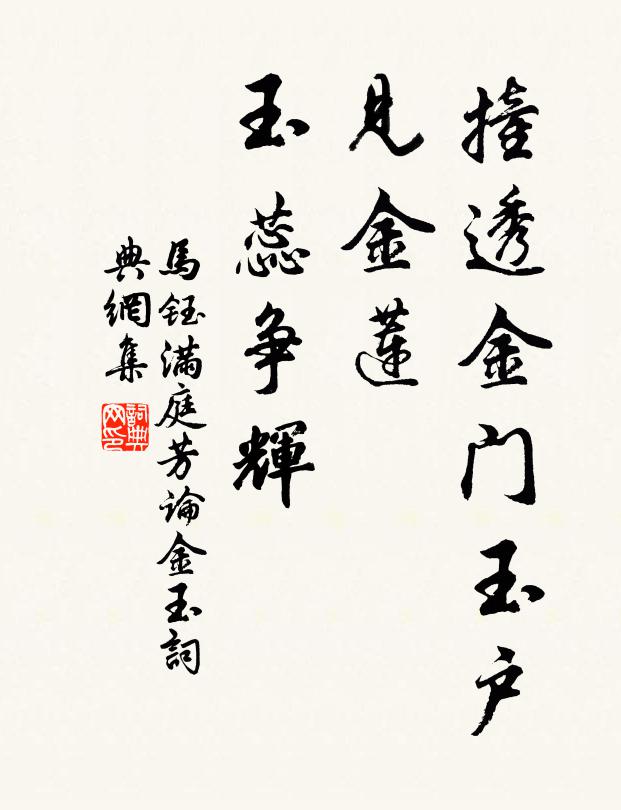 撞透金門玉户
見金蓮
玉蕊争輝
馬鈺滿庭芳論金玉詞
典網集
詞典网印